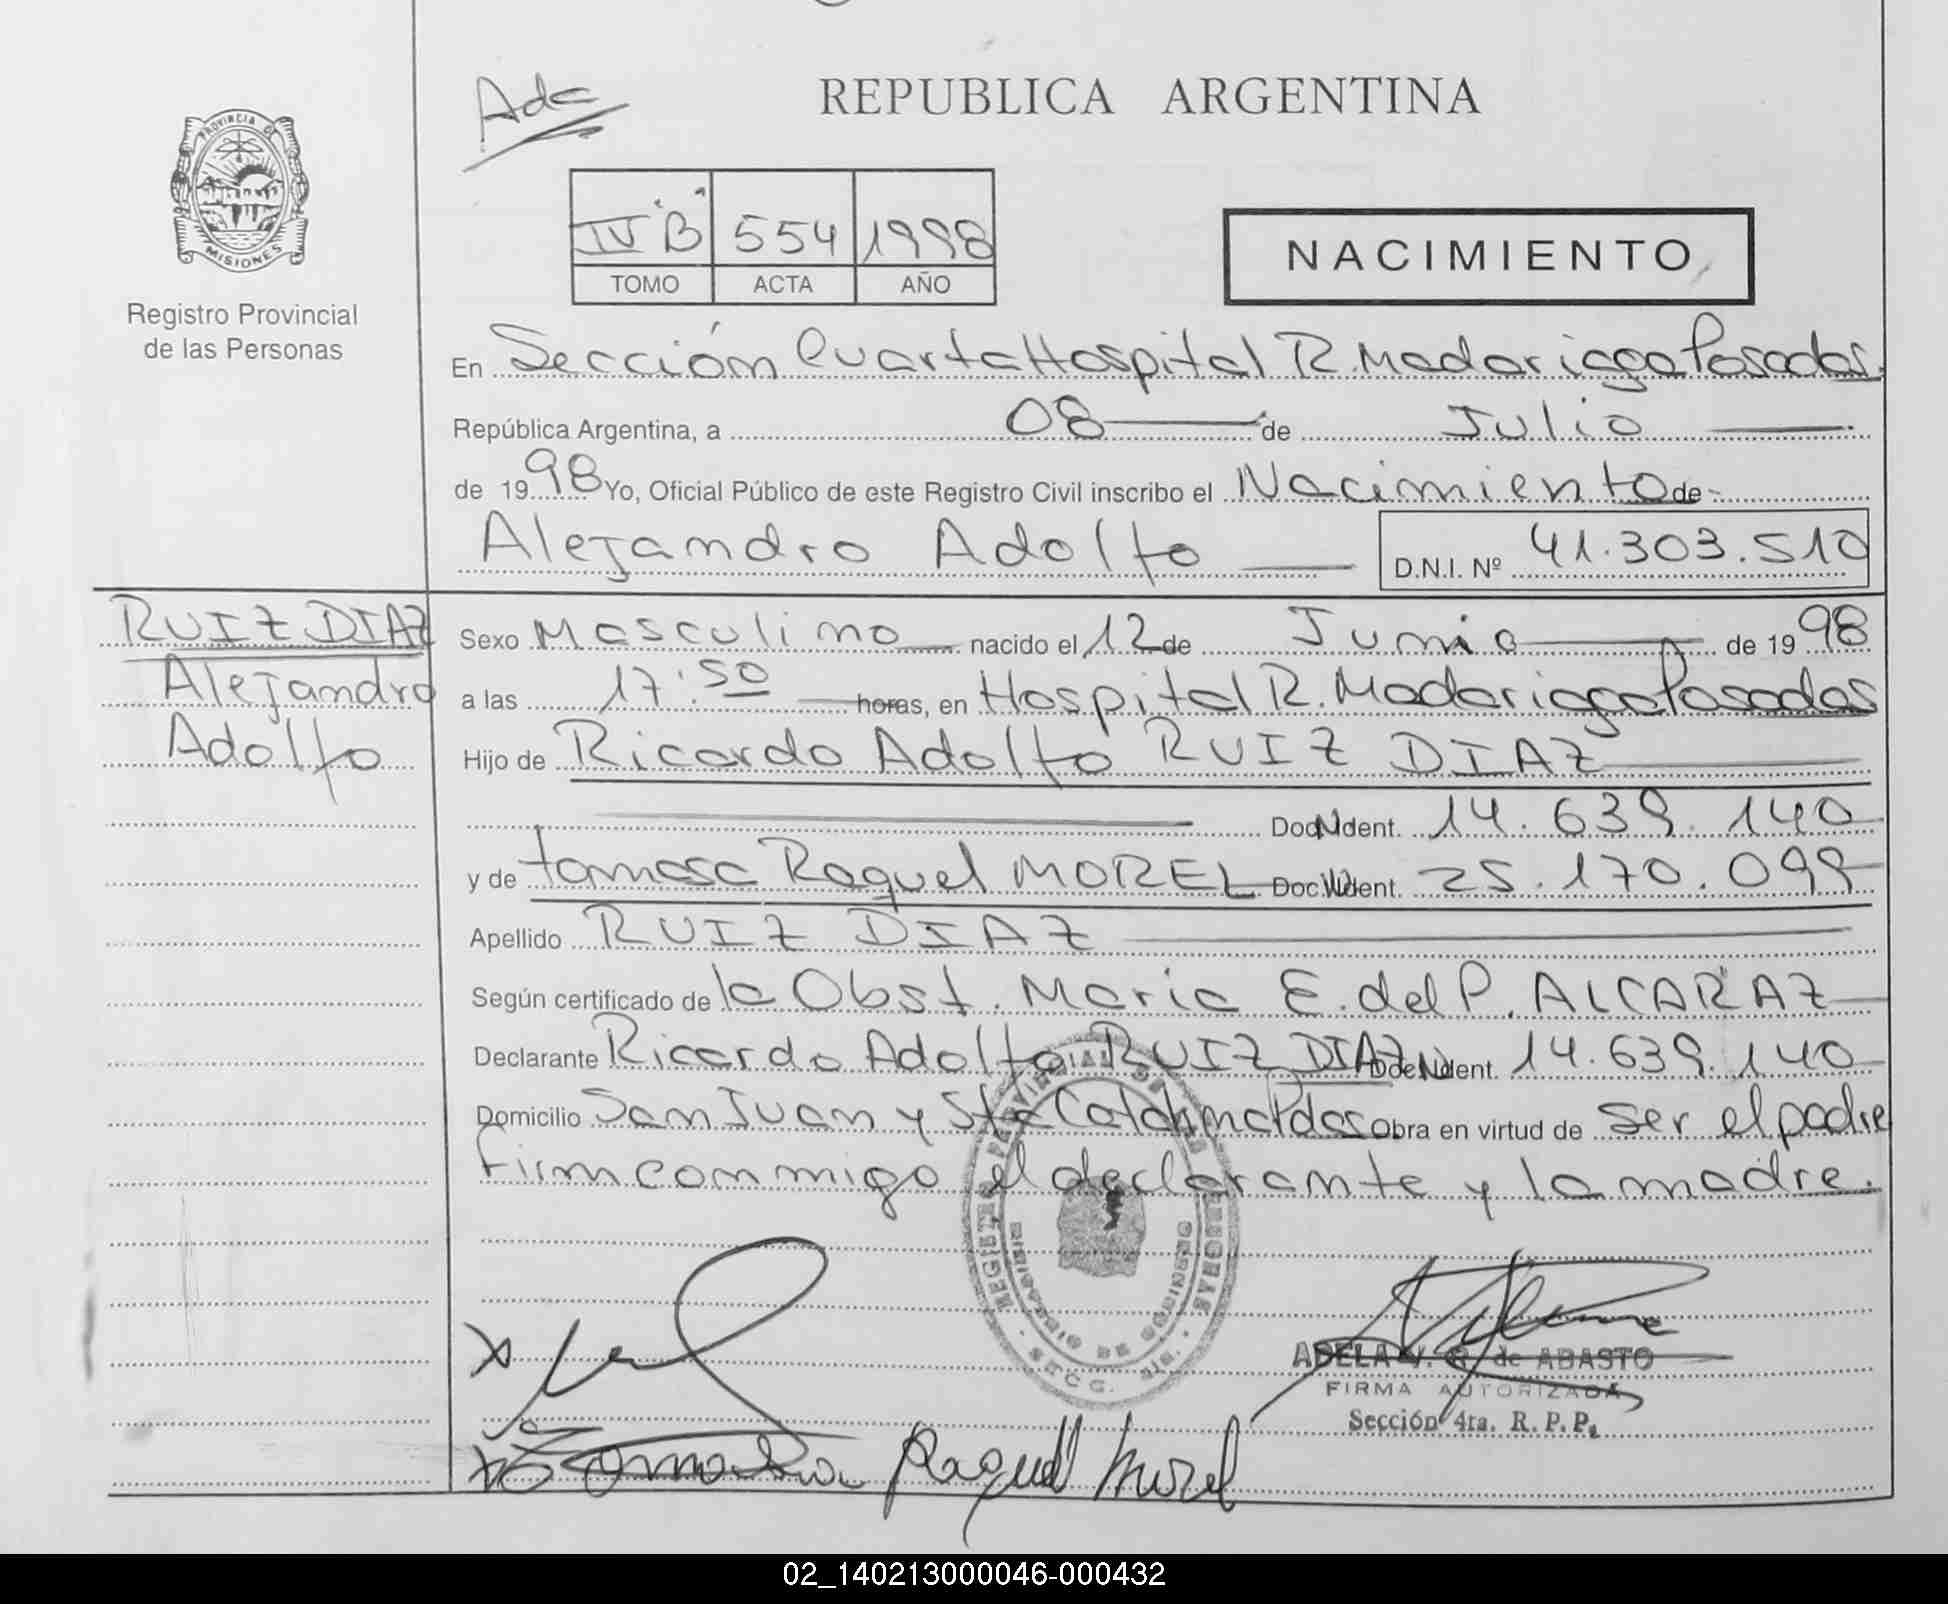 Ada
REPUBLICA ARGENTINA
PROVINCIA DE MISIONES
Registro Provincial
de las Personas
IV "B" 554 1998
TOMO ACTA AÑO
NACIMIENTO
En Sección Cuarta Hospital R. Madariaga Posadas.
República Argentina, a 08 de Julio
de 1998 Yo, Oficial Público de este Registro Civil inscribo el Nacimiento de
Alejandro Adolfo D.N.I. Nº 41.303.510
RUIZ DIAZ
Alejandro
Adolfo
Sexo Masculino nacido el 12 de Junio de 1998
a las 17:50 horas, en Hospital R. Madariaga Posadas
Hijo de Ricardo Adolfo RUIZ DIAZ
Doc. Ident. 14.639.140
y de Tomasa Raquel MOREL Doc. Ident. 25.170.099
Apellido RUIZ DIAZ
Según certificado de la Obst. Maria E. del P. ALCARAZ
Declarante Ricardo Adolfo RUIZ DIAZ Doc. Ident. 14.639.140
Domicilio San Juan y Sta Catalina Pdas Obra en virtud de ser el padre
firman conmigo el declarante y la madre.
ADELA V. de ABASTO
FIRMA AUTORIZADA
Sección 4ta. R. P. P.
Raquel Morel
02_140213000046-000432